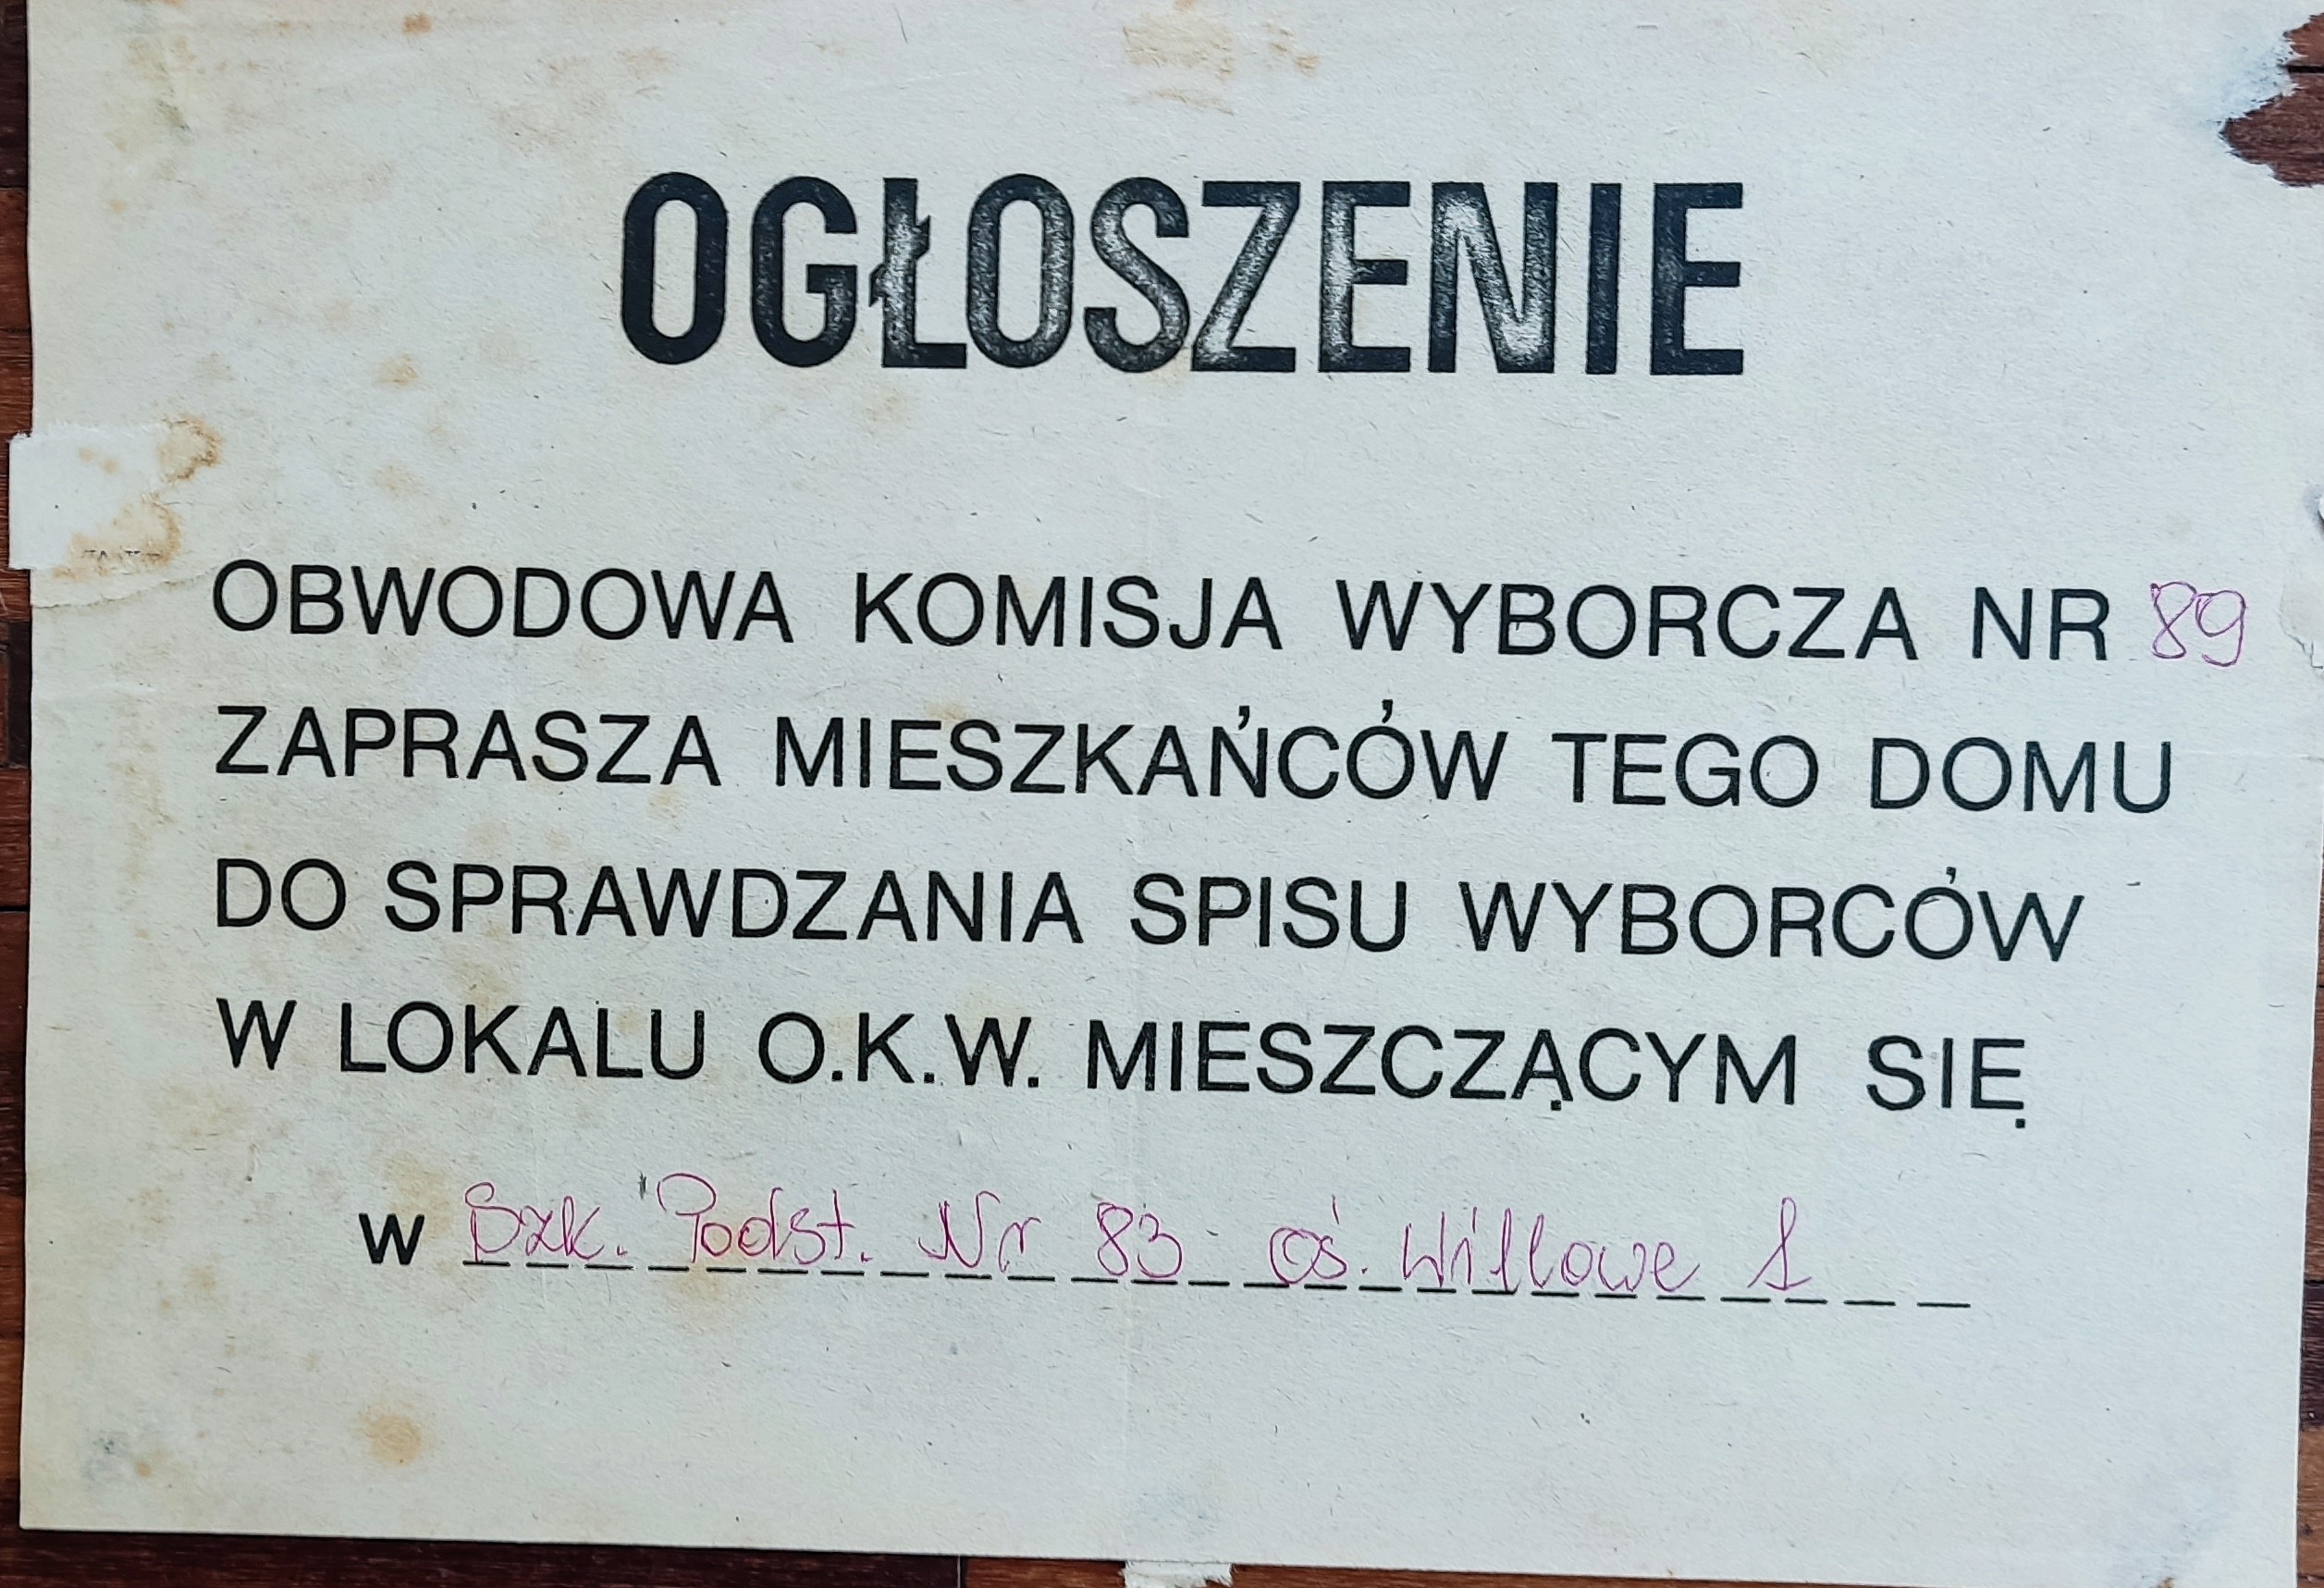 OGŁOSZENIE
OBWODOWA KOMISJA WYBORCZA NR 89
ZAPRASZA MIESZKAŃCÓW TEGO DOMU
DO SPRAWDZANIA SPISU WYBORCÓW
W LOKALU O.K.W. MIESZCZĄCYM SIĘ
w Szk. Podst. Nr 83 oś. Willowe 1